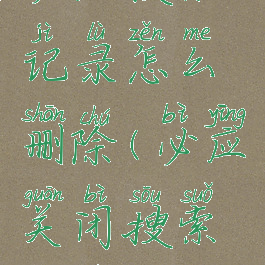 jì lù zěn me
记录怎么
shān chú bì yīng
删除(必应
guān bì sōu suǒ
关闭搜索